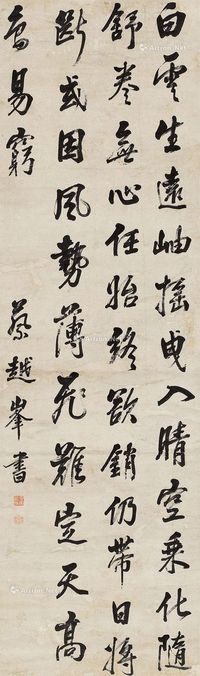 白雲生遠岫搖曳入晴空乘化隨
舒卷無心任始終欲銷仍帶日將
斷或因風勢薄飛難定天高
色易窮
蔡越峯書